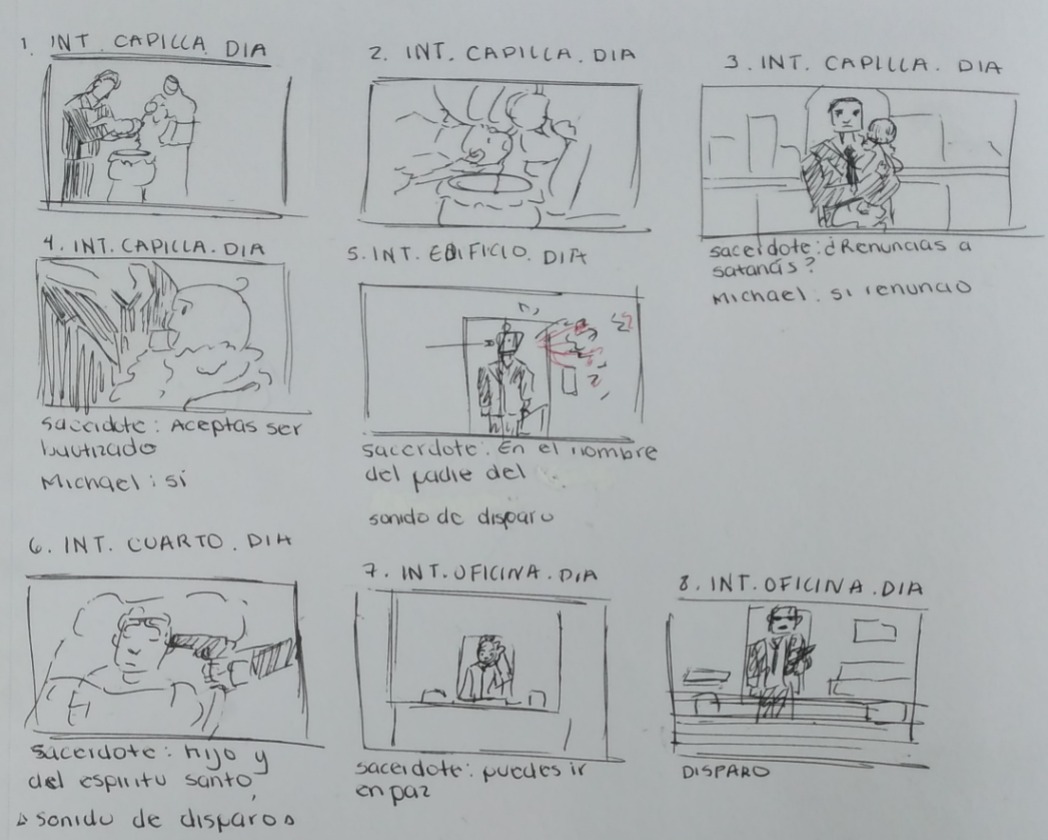 1. INT. CAPILLA. DIA
2. INT. CAPILLA. DIA
3. INT. CAPILLA. DIA
sacerdote: ¿Renuncias a
satanás?
Michael: si renuncio
4. INT. CAPILLA. DIA
sacerdote: Aceptas ser
bautizado
Michael: sí
5. INT. EDIFICIO. DIA
sacerdote: En el nombre
del padre del
sonido de disparo
6. INT. CUARTO. DIA
sacerdote: hijo y
del espiritu santo,
sonido de disparos
7. INT. OFICINA. DIA
sacerdote: puedes ir
en paz
8. INT. OFICINA. DIA
DISPARO